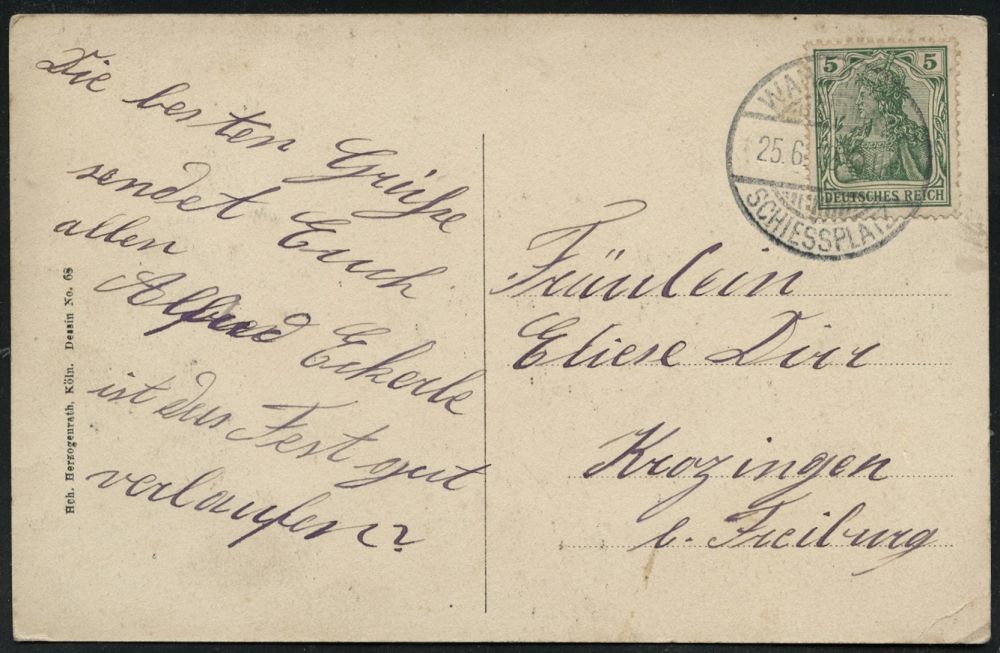 Die besten Grüße
sendet Euch
allen
Alfred Eckerle
ist das Fest gut
verlaufen?
Hch. Herzogenrath, Köln. Dessin No. 68
5 5
DEUTSCHES REICH
WAH
25.6.
SCHIESSPLATZ
Fräulein
Eliese Dirr
Krozingen
b. Freiburg